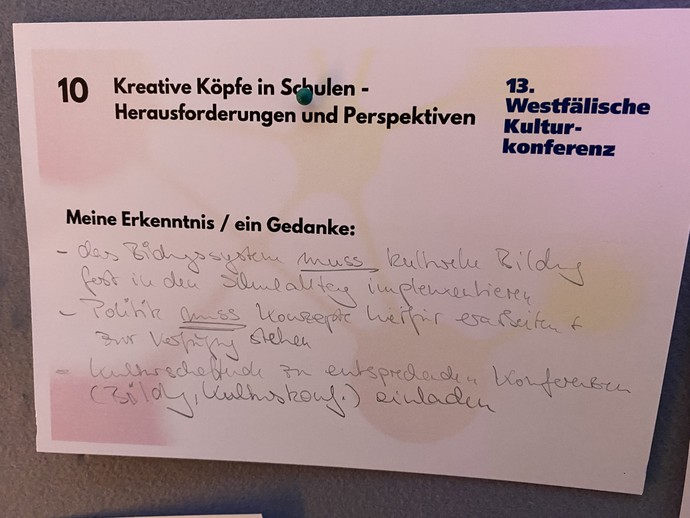 10 Kreative Köpfe in Schulen -
Herausforderungen und Perspektiven
13.
Westfälische
Kultur-
konferenz
Meine Erkenntnis / ein Gedanke:
- das Bildungssystem muss kulturelle Bildung
fest in den Schulalltag implementieren
- Politik muss Konzepte hierfür erarbeiten +
zur Verfügung stehen
- Kulturschaffende zu entsprechenden Konferenzen
(Bildg, Kultuskonf.) einladen